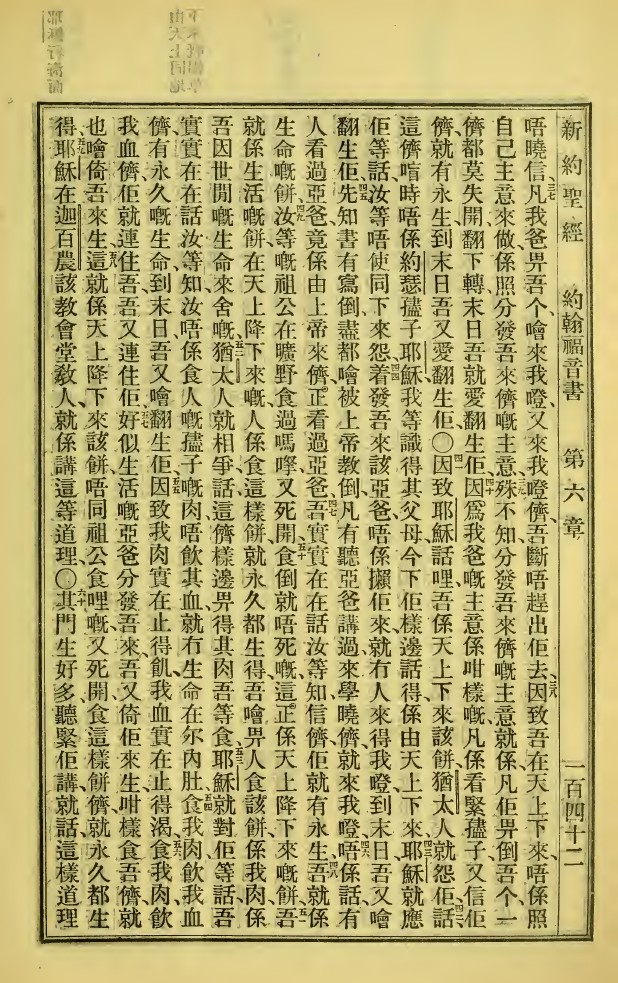 新約聖經 約翰福音書 第六章 一百四十二
唔曉信、三七凡我爸畀吾个、噲來我嶝、又來我嶝儕、吾斷唔趕出佢去、三八因致吾在天上下來、唔係照
自己主意來做、係照分發吾來儕嘅主意、三九殊不知分發吾來儕嘅主意、就係凡佢畀倒吾个、一
儕都莫失開、翻下轉末日吾就愛翻生佢、四十因爲我爸嘅主意係咁樣嘅、凡係看緊孻子、又信佢
儕、就有永生、到末日吾又愛翻生佢〇四一因致耶穌話哩、吾係天上下來該餅、猶太人就怨佢、四二話
這儕唔時唔係約瑟孻子耶穌、我等識得其父母、今下佢樣邊話得係由天上下來、四三耶穌就應
佢等話、汝等唔使同下來怨着、四四發吾來該亞爸唔係攋佢來、就冇人來得我嶝、到末日吾又噲
翻生佢、四五先知書有寫倒、盡都噲被上帝教倒、凡有聽亞爸講過來學曉儕、就來我嶝、四六唔係話有
人看過亞爸、竟係由上帝來儕、正看過亞爸、四七吾實實在在話汝等知、信儕佢就有永生、四八吾就係
生命嘅餅、四九汝等嘅祖公在曠野食過嗎嗱、又死開、五十食倒就唔死嘅、這正係天上降下來嘅餅、五一吾
就係生活嘅餅、在天上降下來嘅、人係食這樣餅、就永久都生得、吾噲畀人食該餅、係我肉、係
吾因世間嘅生命來舍嘅、五二猶太人就相爭話、這儕樣邊畀得其肉吾等食、五三耶穌就對佢等話、吾
實實在在話汝等知、汝唔係食人嘅孻子嘅肉、唔飲其血、就冇生命在尔內肚、五四食我肉飲我血
儕、有永久嘅生命、到末日吾又噲翻生佢、五五因致我肉實在止得飢、我血實在止得渴、五六食我肉飲
我血儕、佢就連住吾、吾又連住佢、五七好似生活嘅亞爸分發吾來、吾又倚佢來生、咁樣食吾儕、就
也噲倚吾來生、五八這就係天上降下來該餅、唔同祖公食哩嘅、又死開、食這樣餅儕、就永久都生
得、五九耶穌在迦百農該教會堂教人、就係講這等道理〇六十其門生好多聽緊佢講、就話、這樣道理